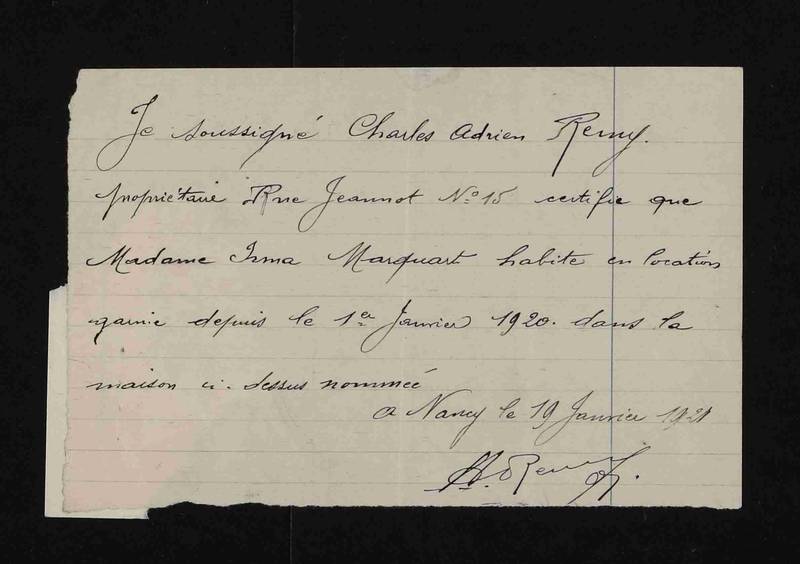 Je soussigné Charles Adrien Remy.
propriétaire Rue Jeannot No 15 certifie que
Madame Irma Marquart habite en location
garnie depuis le 1er Janvier 1920. dans la
maison ci-dessus nommée
a Nancy le 19 Janvier 1921
A. Remy